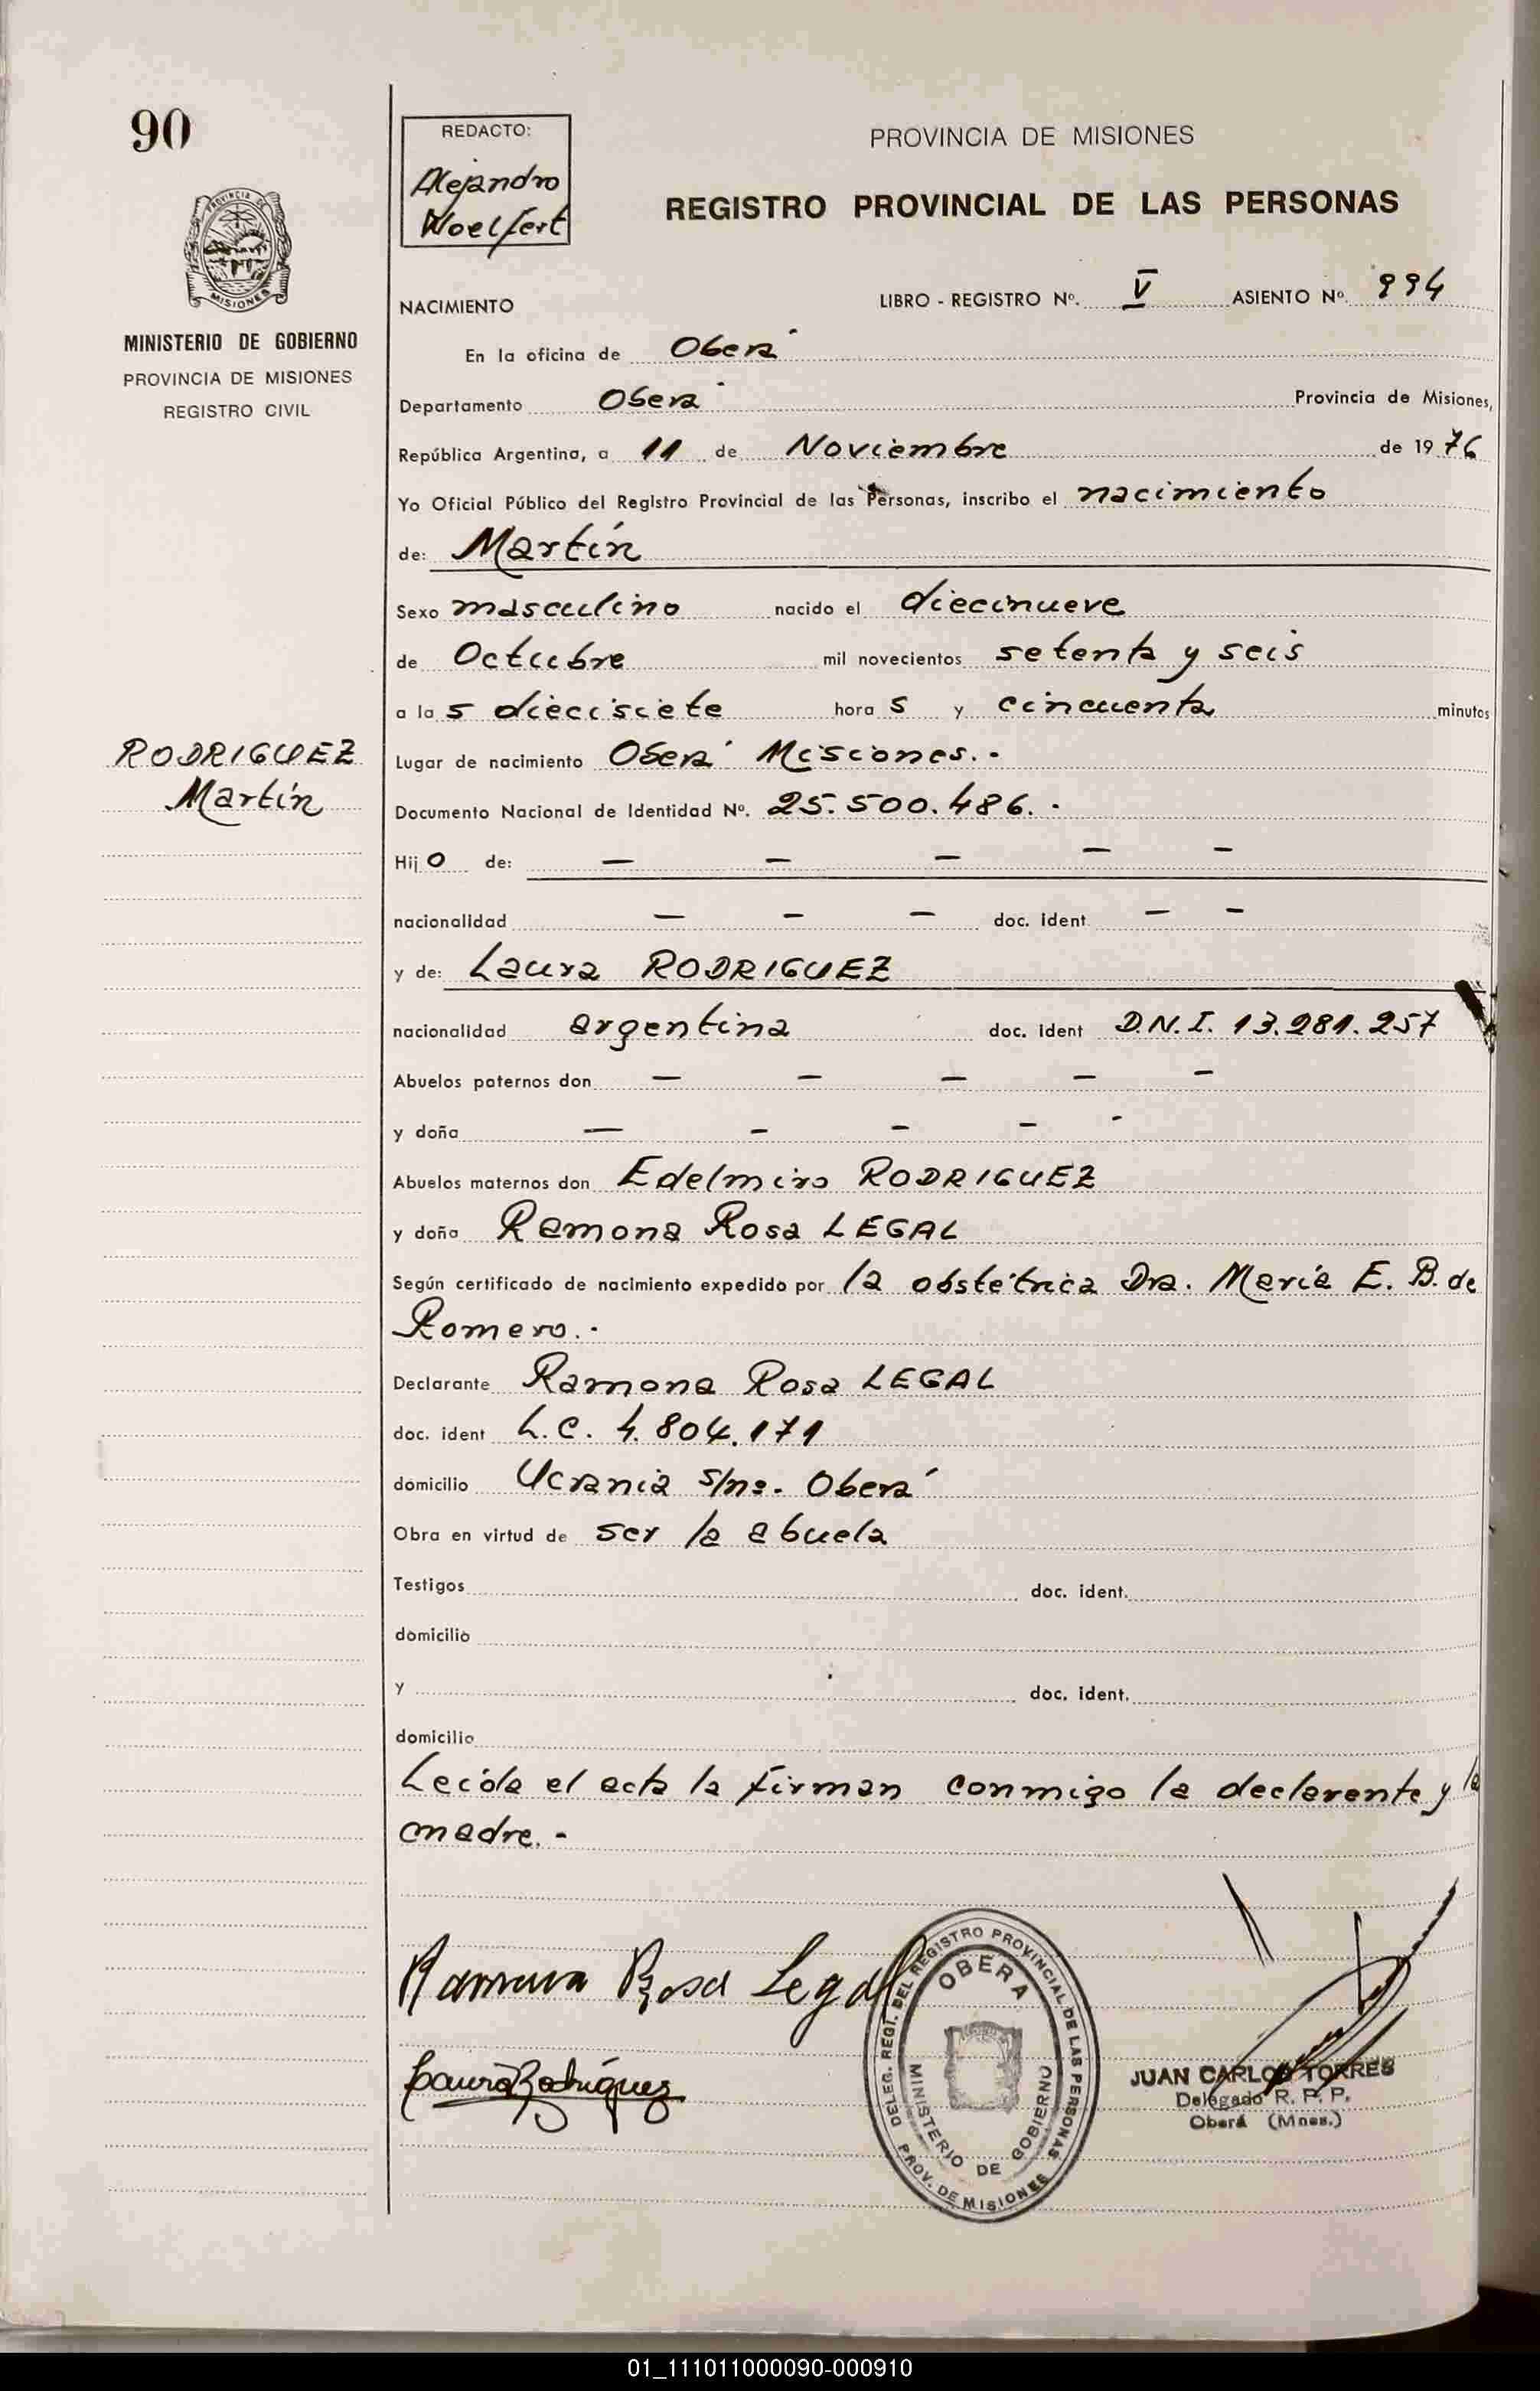 90
REDACTO:
Alejandro
Woelfert
PROVINCIA DE MISIONES
REGISTRO PROVINCIAL DE LAS PERSONAS
MISIONES
MINISTERIO DE GOBIERNO
PROVINCIA DE MISIONES
REGISTRO CIVIL
NACIMIENTO LIBRO - REGISTRO Nº. V ASIENTO Nº. 994
En la oficina de Oberá
Departamento Oberá Provincia de Misiones,
República Argentina, a 11 de Noviembre de 1976
Yo Oficial Público del Registro Provincial de las Personas, inscribo el nacimiento
de: Martín
Sexo masculino nacido el diecinueve
de Octubre mil novecientos setenta y seis
a las diecisiete horas y cincuenta minutos
RODRIGUEZ
Martín
Lugar de nacimiento Oberá Misiones.-
Documento Nacional de Identidad Nº. 25.500.486.-
Hijo de: — — — — —
nacionalidad — — — doc. ident — —
y de: Laura RODRIGUEZ
nacionalidad argentina doc. ident D.N.I. 13.281.257
Abuelos paternos don — — — — —
y doña — — — — -
Abuelos maternos don Edelmiro RODRIGUEZ
y doña Ramona Rosa LEGAL
Según certificado de nacimiento expedido por la obstétrica Dra. María E. B. de
Romero.-
Declarante Ramona Rosa LEGAL
doc. ident L.C. 4.804.171
domicilio Ucrania s/nº.- Oberá
Obra en virtud de ser la abuela
Testigos doc. ident.
domicilio
y doc. ident.
domicilio
Leída el acta la firman conmigo la declarante y la
madre.-
Ramona Rosa Legal
Laura Rodríguez
DELEG. REGI. DEL REGISTRO PROVINCIAL DE LAS PERSONAS
OBERA
MINISTERIO DE GOBIERNO
PROV. DE MISIONES
JUAN CARLOS TORRES
Delegado R. P. P.
Oberá (Mnes.)
01_111011000090-000910